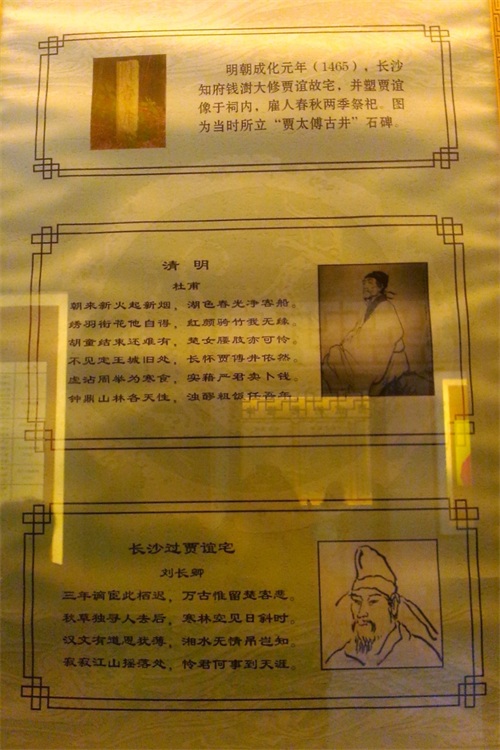 明朝成化元年（1465），长沙
知府钱澍大修贾谊故宅，并塑贾谊
像于祠内，雇人春秋两季祭祀。图
为当时所立“贾太傅古井”石碑。
清 明
杜甫
朝来新火起新烟，湖色春光净客船。
绣羽衔花他自得，红颜骑竹我无缘。
胡童结束还难有，楚女腰肢亦可怜。
不见定王城旧处，长怀贾傅井依然。
虚沾周举为寒食，实藉严君卖卜钱。
钟鼎山林各天性，浊醪粗饭任吾年。
长沙过贾谊宅
刘长卿
三年谪宦此栖迟，万古惟留楚客悲。
秋草独寻人去后，寒林空见日斜时。
汉文有道恩犹薄，湘水无情吊岂知。
寂寂江山摇落处，怜君何事到天涯。